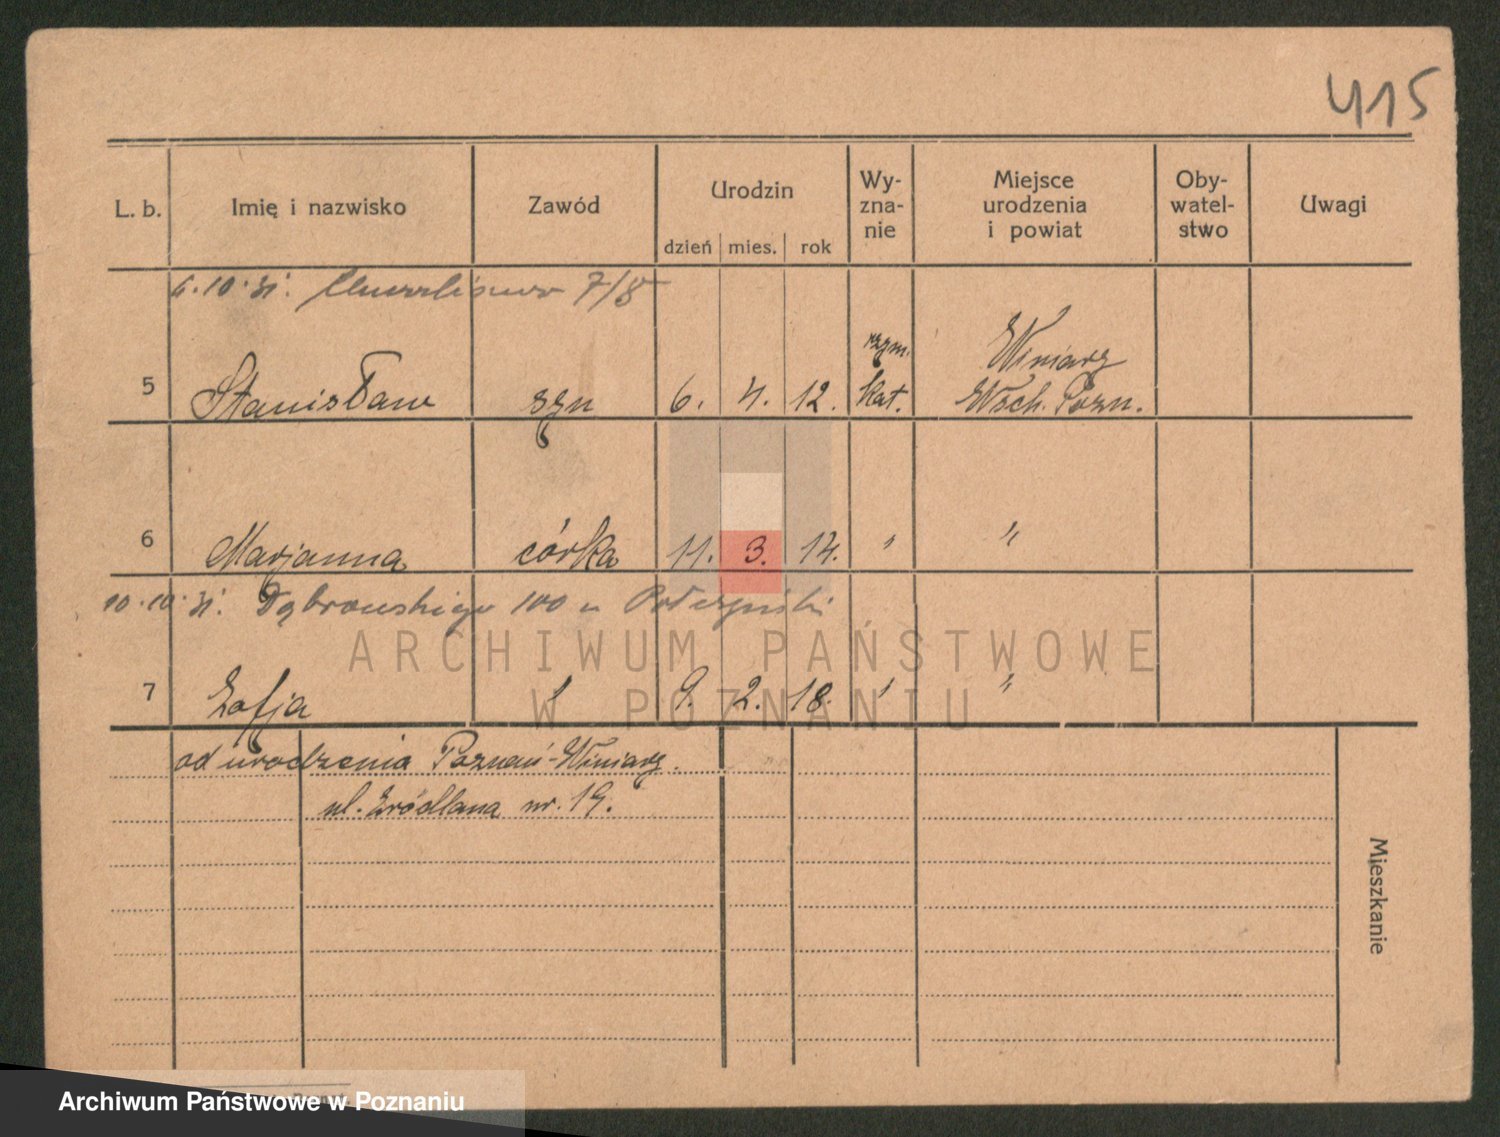 415
L. b. Imię i nazwisko Zawód Urodzin dzień mies. rok Wy-zna-nie Miejsce urodzenia i powiat Oby-watel-stwo Uwagi
6.10.31. 7/8
5 Stanisław syn 6. 4. 12. rzym. kat. Winiary Wsch. Pozn.
6 Marjanna córka 11. 3. 14. " "
10.10.31. Dąbrowskiego 100 u
7 Zofja " 9. 2. 18. " "
ARCHIWUM PAŃSTWOWE
W POZNANIU
od urodzenia Poznań-Winiary.
ul. Źródlana nr. 19.
Mieszkanie
Archiwum Państwowe w Poznaniu